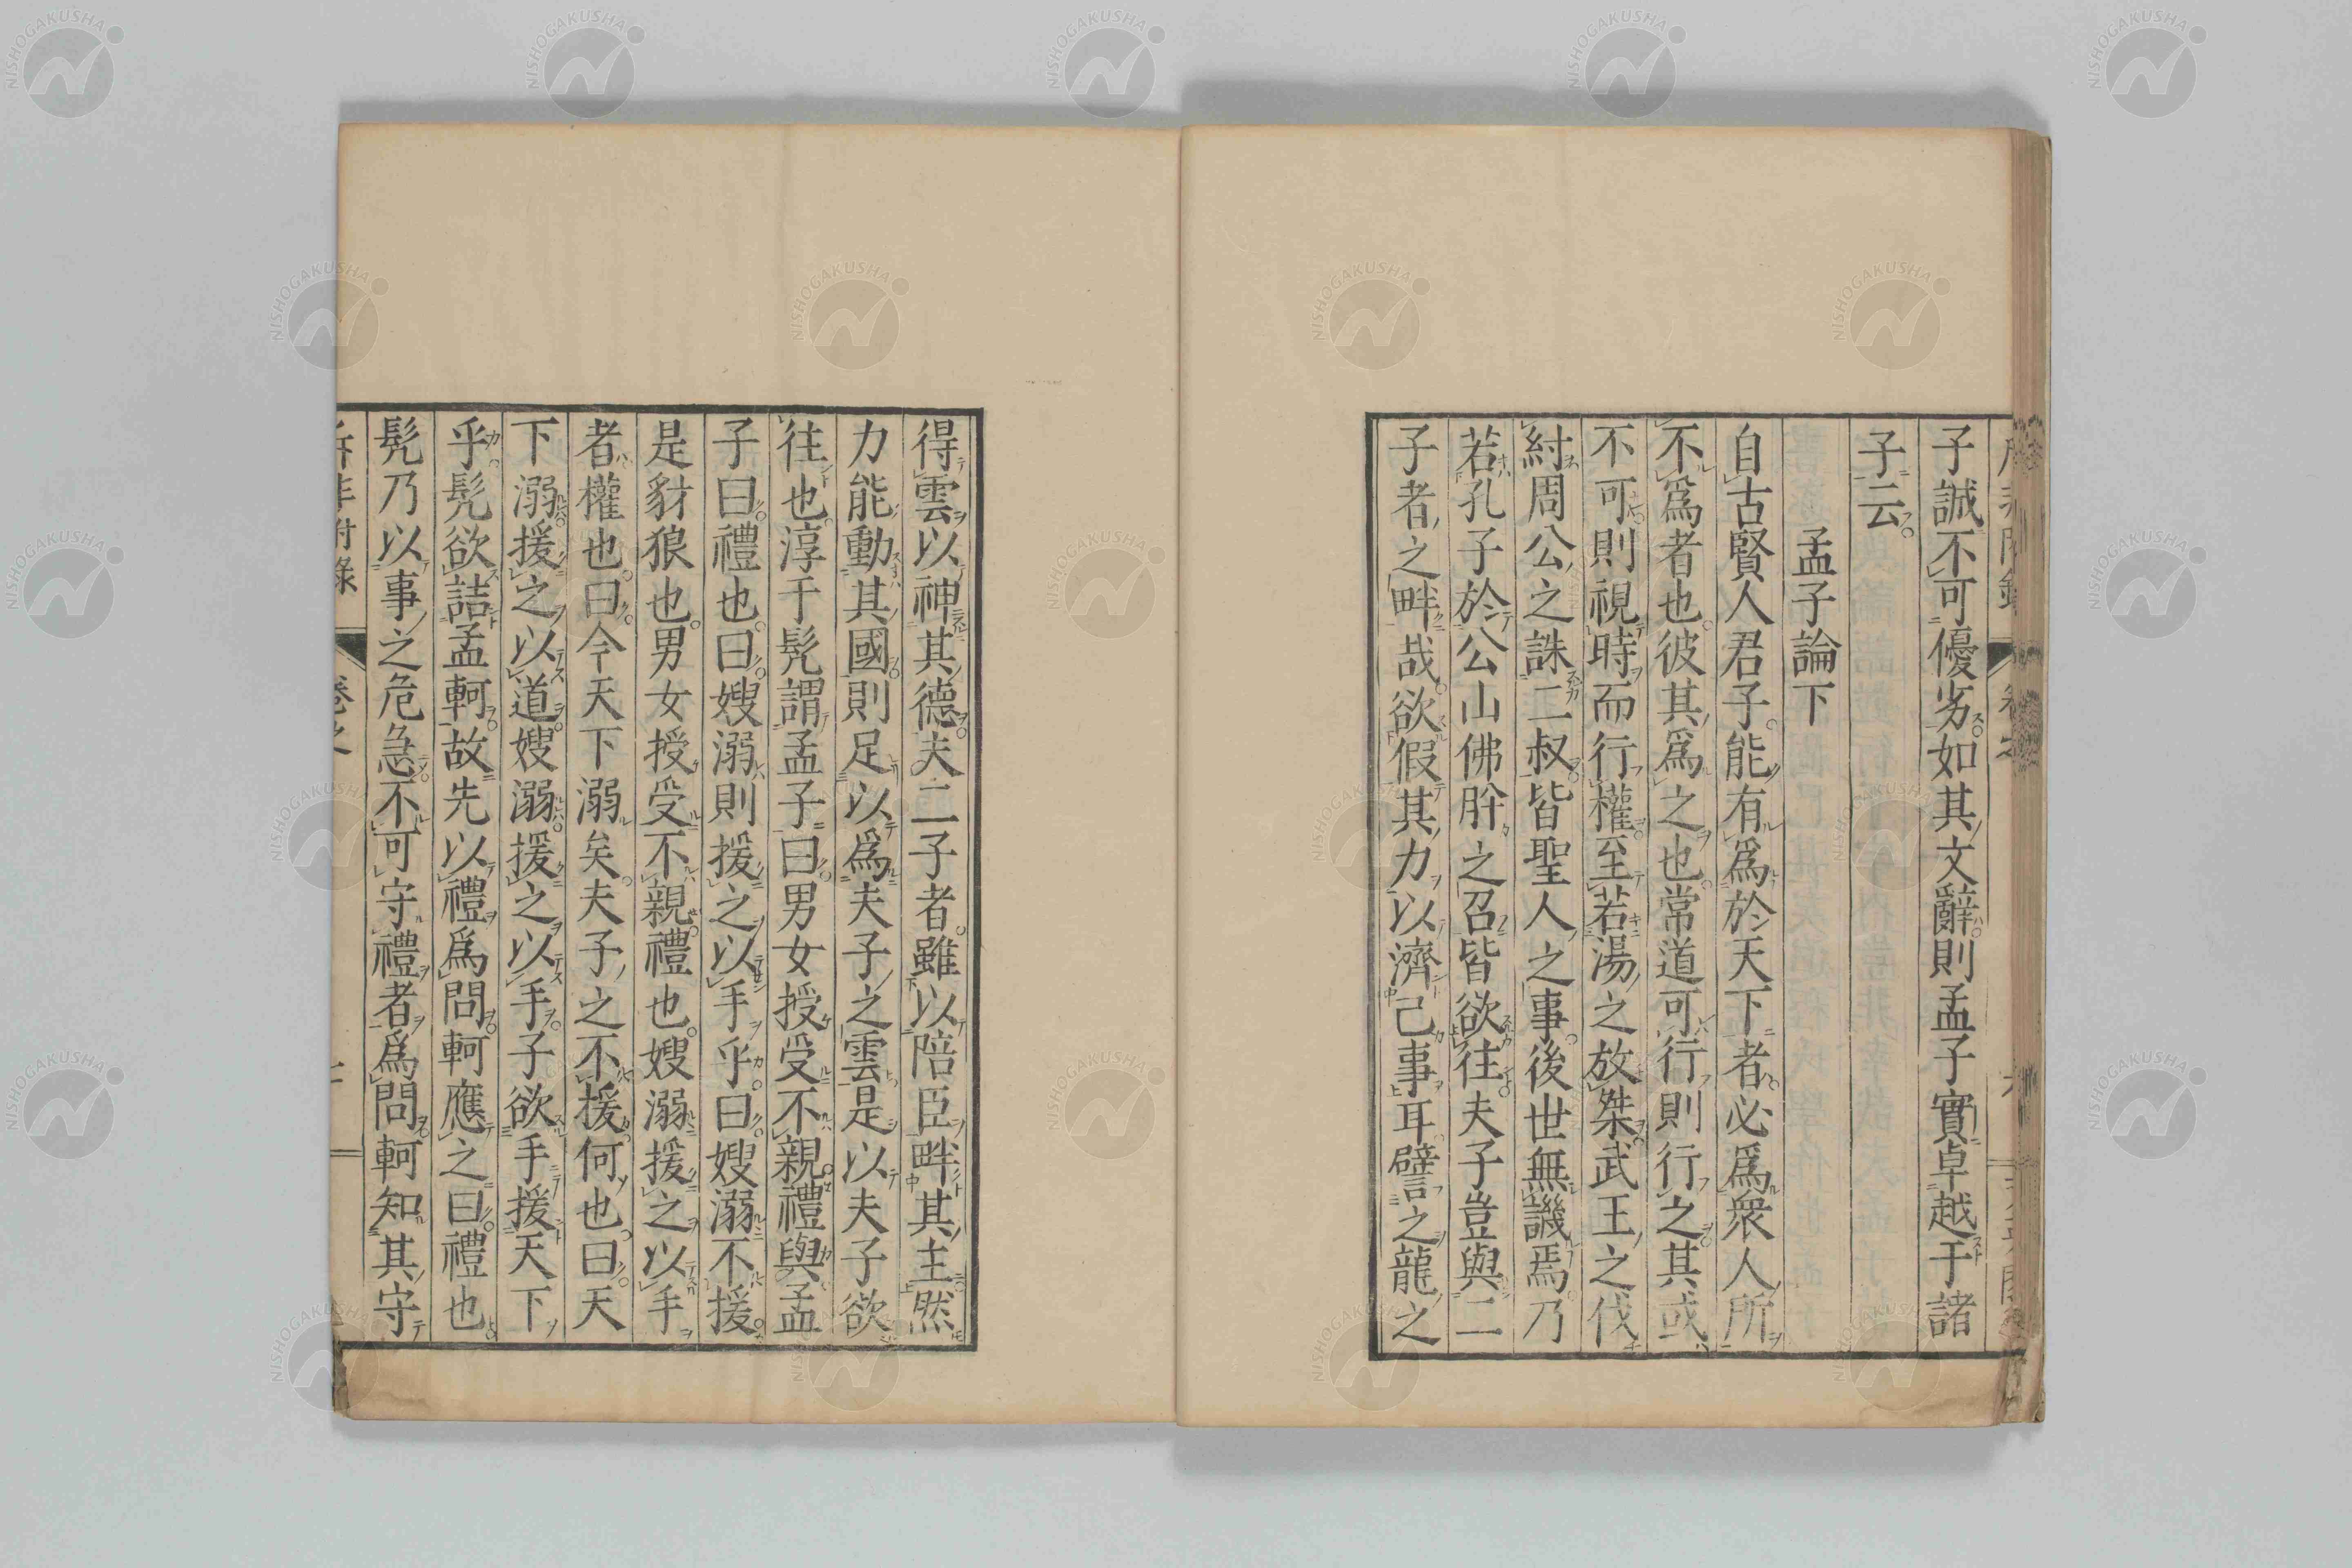 子誠不可優劣如其文辭則孟子實卓越于諸
子云
孟子論下
自古賢人君子能有爲於天下者必爲衆人所
不爲者也彼其爲之也常道可行則行之其或
不可則視時而行權至若湯之放桀武王之伐
紂周公之誅二叔皆聖人之事後世無譏焉乃
若孔子於公山佛肸之召皆欲往夫子豈與二
子者之畔哉欲假其力以濟己事耳譬之龍之
得雲以神其德夫二子者雖以陪臣畔其主然
力能動其國則足以爲夫子之雲是以夫子欲
往也淳于髡謂孟子曰男女授受不親禮與孟
子曰禮也曰嫂溺則援之以手乎曰嫂溺不援
是豺狼也男女授受不親禮也嫂溺援之以手
者權也曰今天下溺矣夫子之不援何也曰天
下溺援之以道嫂溺援之以手子欲手援天下
乎髡欲詰孟軻故先以禮爲問軻應之曰禮也
髡乃以事之危急不可守禮者爲問軻知其守
NISHOGAKUSHA